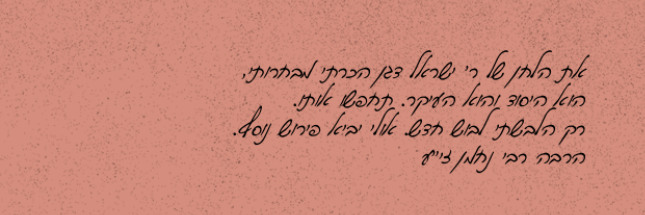 את הלחן של ר' ישראל דגן הכרתי מבחרותי,
הוא היסוד והוא העיקר. תחפשו אותו.
רק הלבשתי לבוש חדש. אולי יביא פירוש נוסף.
הרבה רבי נחמן זייע